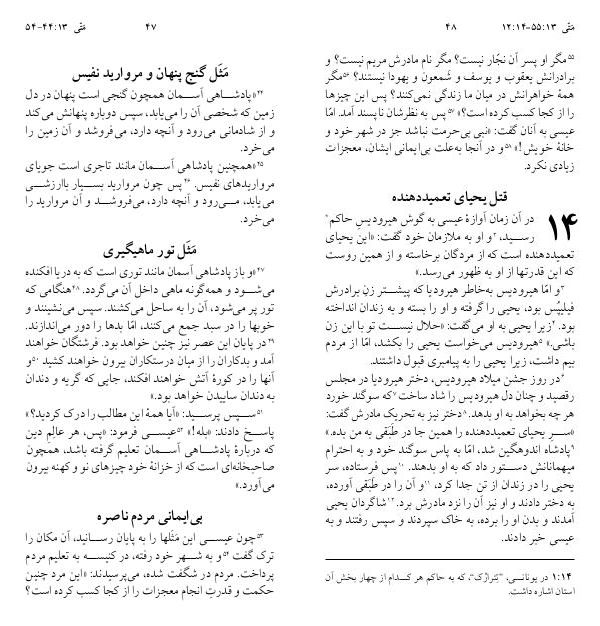 مَتّی ۱۳:‏۴۴-‏۵۴
۴۷
مَثَل گنج پنهان و مروارید نفیس
۴۴«پادشاهی آسمان همچون گنجی است پنهان در دل
زمین که شخصی آن را می‌یابد، سپس دوباره پنهانش می‌کند
و از شادمانی می‌رود و آنچه دارد، می‌فروشد و آن زمین را
می‌خرد.
۴۵«همچنین پادشاهی آسمان مانند تاجری است جویای
مرواریدهای نفیس. ۴۶پس چون مروارید بسیار باارزشی
می‌یابد، می‌رود و آنچه دارد، می‌فروشد و آن مروارید را
می‌خرد.
مَثَل تور ماهیگیری
۴۷«و باز پادشاهی آسمان مانند توری است که به دریا افکنده
می‌شود و همه‌گونه ماهی داخل آن می‌گردد. ۴۸هنگامی که
تور پر می‌شود، آن را به ساحل می‌کشند. سپس می‌نشینند و
خوبها را در سبد جمع می‌کنند، امّا بدها را دور می‌اندازند.
۴۹در پایان این عصر نیز چنین خواهد بود. فرشتگان خواهند
آمد و بدکاران را از میان درستکاران بیرون خواهند کشید ۵۰و
آنها را در کورهٔ آتش خواهند افکند، جایی که گریه و دندان
به دندان ساییدن خواهد بود.»
۵۱سپس پرسید: «آیا همهٔ این مطالب را درک کردید؟»
پاسخ دادند: «بله!» ۵۲عیسی فرمود: «پس، هر عالِم دین
که دربارهٔ پادشاهی آسمان تعلیم گرفته باشد، همچون
صاحبخانه‌ای است که از خزانهٔ خود چیزهای نو و کهنه بیرون
می‌آورد.»
بی‌ایمانی مردم ناصره
۵۳چون عیسی این مَثَلها را به پایان رسانید، آن مکان را
ترک گفت ۵۴و به شهر خود رفته، در کنیسه به تعلیم مردم
پرداخت. مردم در شگفت شده، می‌پرسیدند: «این مرد چنین
حکمت و قدرتِ انجام معجزات را از کجا کسب کرده است؟
۴۸
مَتّی ۱۳:‏۵۵-‏۱۴:‏۱۲
۵۵مگر او پسر آن نجّار نیست؟ مگر نام مادرش مریم نیست؟ و
برادرانش یعقوب و یوسف و شَمعون و یهودا نیستند؟ ۵۶مگر
همهٔ خواهرانش در میان ما زندگی نمی‌کنند؟ پس این چیزها
را از کجا کسب کرده است؟» ۵۷پس به نظرشان ناپسند آمد. امّا
عیسی به آنان گفت: «نبی بی‌حرمت نباشد جز در شهر خود و
خانهٔ خویش!» ۵۸و در آنجا به‌علت بی‌ایمانی ایشان، معجزات
زیادی نکرد.
قتل یحیای تعمیددهنده
۱۴ در آن زمان آوازهٔ عیسی به گوش هیرودیسِ حاکم*
رسید، ۲و او به ملازمان خود گفت: «این یحیای
تعمیددهنده است که از مردگان برخاسته و از همین روست
که این قدرتها از او به ظهور می‌رسد.»
۳و امّا هیرودیس به‌خاطر هیرودیا که پیشتر زن برادرش
فیلیپُس بود، یحیی را گرفته و او را بسته و به زندان انداخته
بود. ۴زیرا یحیی به او می‌گفت: «حلال نیست تو با این زن
باشی.» ۵هیرودیس می‌خواست یحیی را بکشد، امّا از مردم
بیم داشت، زیرا یحیی را به پیامبری قبول داشتند.
۶در روز جشن میلاد هیرودیس، دختر هیرودیا در مجلس
رقصید و چنان دل هیرودیس را شاد ساخت ۷که سوگند خورد
هر چه بخواهد به او بدهد. ۸دختر نیز به تحریک مادرش گفت:
«سر یحیای تعمیددهنده را همین جا در طَبَقی به من بده.»
۹پادشاه اندوهگین شد، امّا به پاس سوگند خود و به احترام
میهمانانش دستور داد که به او بدهند. ۱۰پس فرستاده، سر
یحیی را در زندان از تن جدا کرد، ۱۱و آن را در طَبَقی آورده،
به دختر دادند و او نیز آن را نزد مادرش برد. ۱۲شاگردان یحیی
آمدند و بدن او را برده، به خاک سپردند و سپس رفتند و به
عیسی خبر دادند.
۱۴:‏۱ در یونانی، ”تِتْرارْک“، که به حاکم هر کدام از چهار بخش آن
استان اشاره داشت.